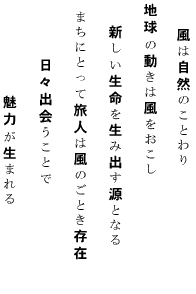 風は自然のことわり
地球の動きは風をおこし
新しい生命を生み出す源となる
まちにとって旅人は風のごとき存在
日々出会うことで
魅力が生まれる